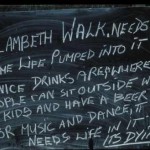 LAMBETH WALK, NEEDS
THE LIFE PUMPED INTO IT
NICE DRINKS AREAS WHERE
PEOPLE CAN SIT OUTSIDE W
KIDS AND HAVE A BEER
OR MUSIC AND DANCE, IT
NEEDS LIFE IN IT,
ITS DYIN